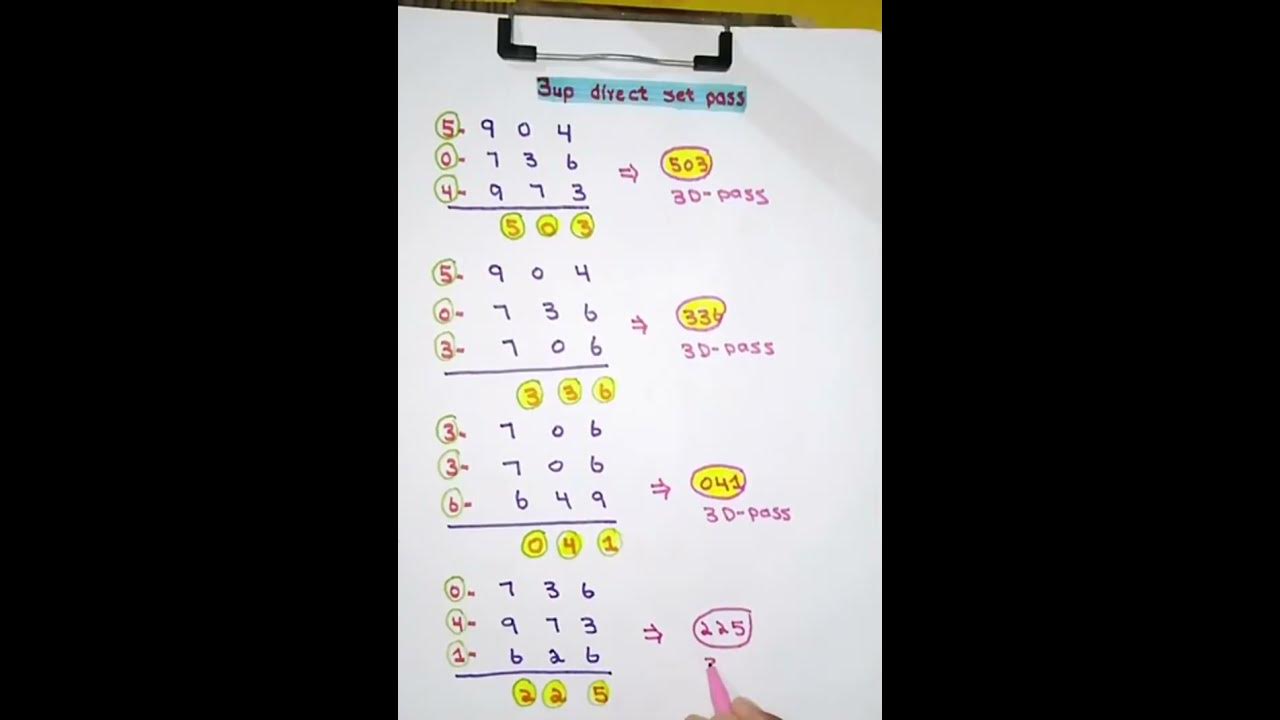 3up direct set pass
5- 9 0 4
0- 7 3 6 ⇒ 503
4- 9 7 3 3D-pass
5 0 3
5- 9 0 4
0- 7 3 6 ⇒ 336
3- 7 0 6 3D-pass
3 3 6
3- 7 0 6
3- 7 0 6 ⇒ 041
6- 6 4 9 3D-pass
0 4 1
0- 7 3 6
4- 9 7 3 ⇒ 225
1- 6 2 6
2 2 5